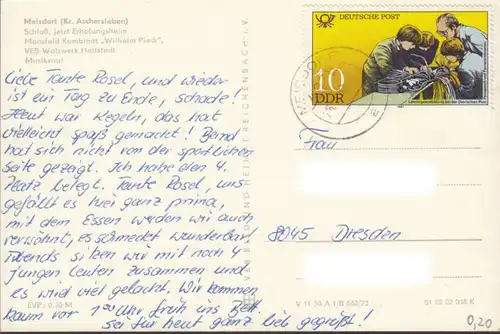 Meisdorf (Kr. Aschersleben)
Schloß, jetzt Erholungsheim
Mansfeld Kombinat „Wilhelm Pieck“,
VEB Walzwerk Hettstedt
Liebe Tante Rosel, und wieder
ist ein Tag zu Ende, schade!
Heut war Kegeln, das hat
vielleicht Spaß gemacht! Bernd
hat sich nicht von der sportlichen
Seite gezeigt. Ich habe den 4.
Platz belegt. Tante Rosel, uns
gefällt es hier ganz prima,
mit dem Essen werden wir auch
verwöhnt, es schmeckt wunderbar!
Abends sitzen wir mit noch 4
jungen Leuten zusammen und
es wird viel gelacht. Wir kommen
kaum vor 1 Uhr früh ins Bett.
Sei für heut ganz lieb gegrüßt!
EVP: 0,20 M
BILD UND HEIMAT REICHENBACH I. V.
DEUTSCHE POST
10
DDR
Frau
8045 Dresden
V 11 50 A 1/B 662/73
01 08 02 038 K
0,20